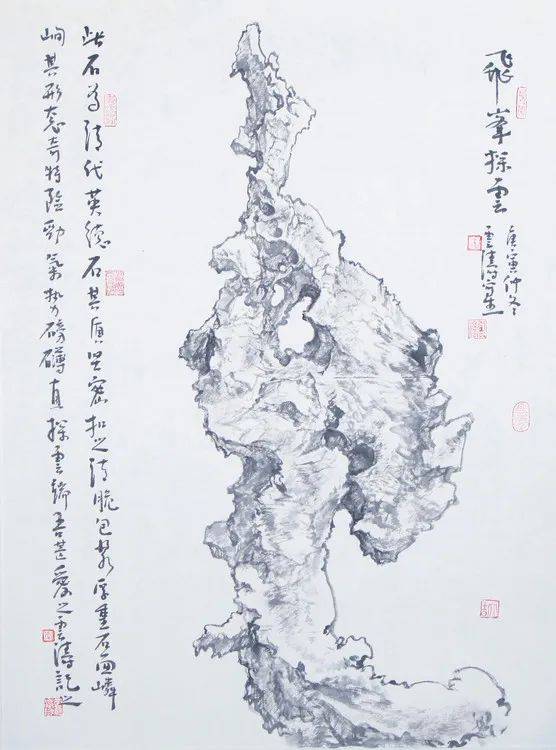 飛峯探雲
庚寅仲冬
雲濤寫生
此石為清代英德石其質堅密扣之清脆包漿厚重石面嶙
峋其形態奇特險勁氣勢磅礴直探雲端吾甚愛之雲濤記之